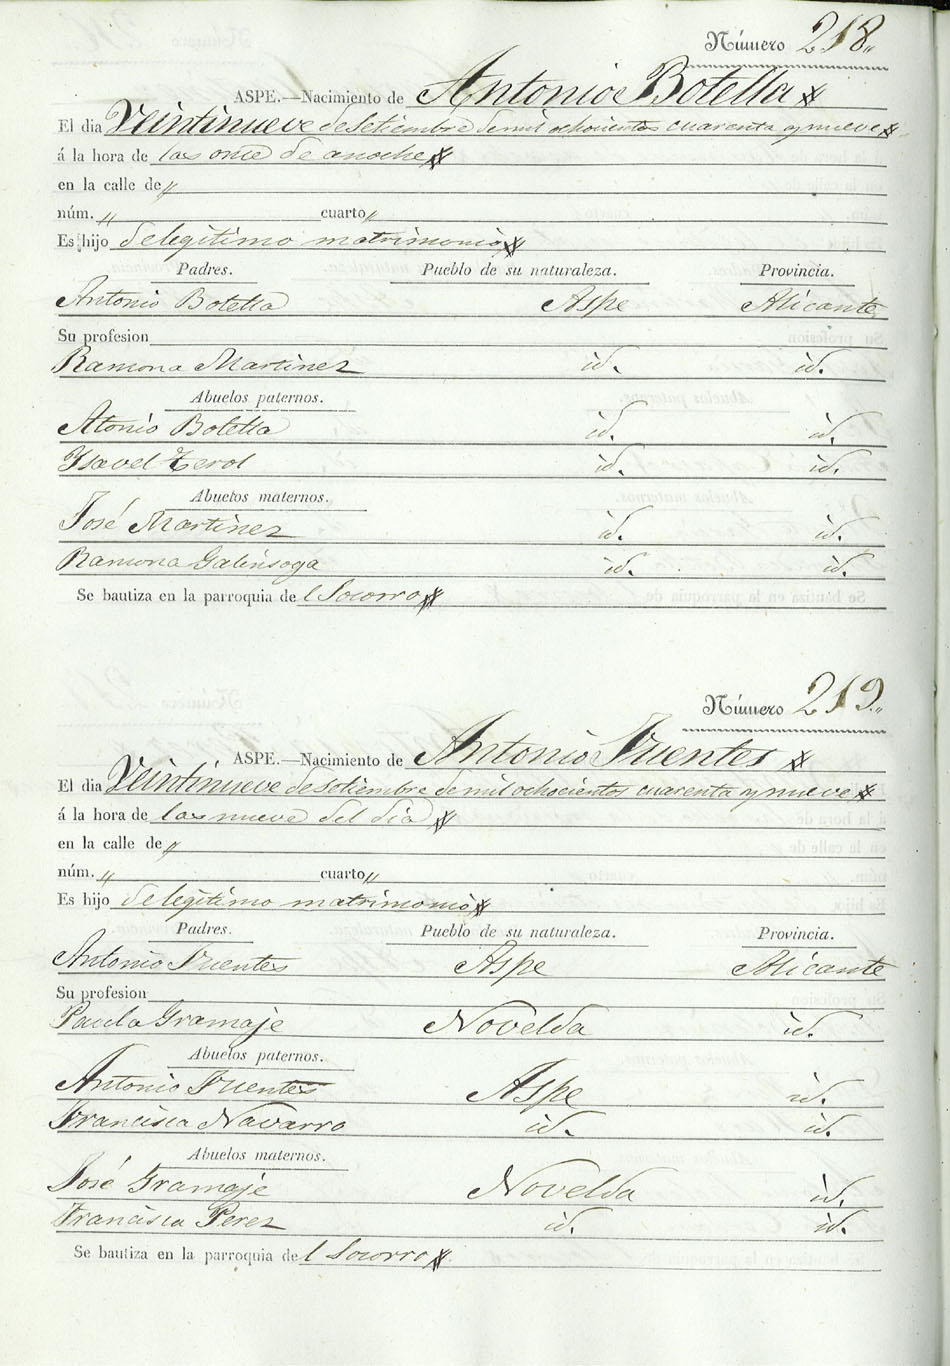 Número 218"
ASPE.—Nacimiento de Antonio Botella
El dia Veintinueve de Setiembre de mil ochocientos cuarenta y nueve
á la hora de las once de anoche
en la calle de "
núm. " cuarto "
Es hijo de legitimo matrimonio
Padres. Pueblo de su naturaleza. Provincia.
Antonio Botella Aspe Alicante
Su profesion
Ramona Martinez id. id.
Abuelos paternos.
Atonio Botella id. id.
Ysavel Terol id. id.
Abuelos maternos.
José Martinez id. id.
Ramona Galinsoga id. id.
Se bautiza en la parroquia de l Socorro
Número 219"
ASPE.—Nacimiento de Antonio Fuentes
El dia Veintinueve de setiembre de mil ochocientos cuarenta y nueve
á la hora de las nueve del dia
en la calle de "
núm. " cuarto "
Es hijo de legitimo matrimonio
Padres. Pueblo de su naturaleza. Provincia.
Antonio Fuentes Aspe Alicante
Su profesion
Paula Gramaje Novelda id.
Abuelos paternos.
Antonio Fuentes Aspe id.
Francisca Navarro id. id.
Abuelos maternos.
José Gramaje Novelda id.
Francisca Perez id. id.
Se bautiza en la parroquia de l Socorro